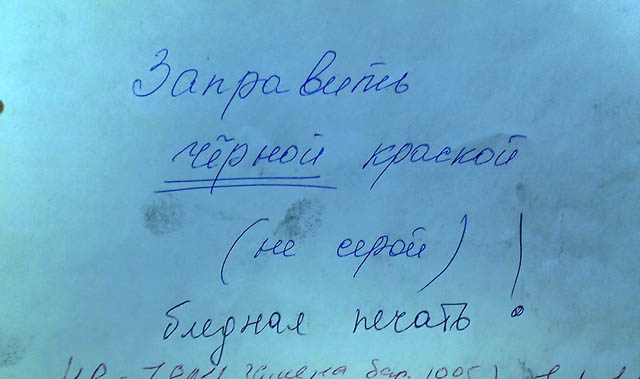 Заправить
чёрной краской
(не серой) !
бледная печать
замена